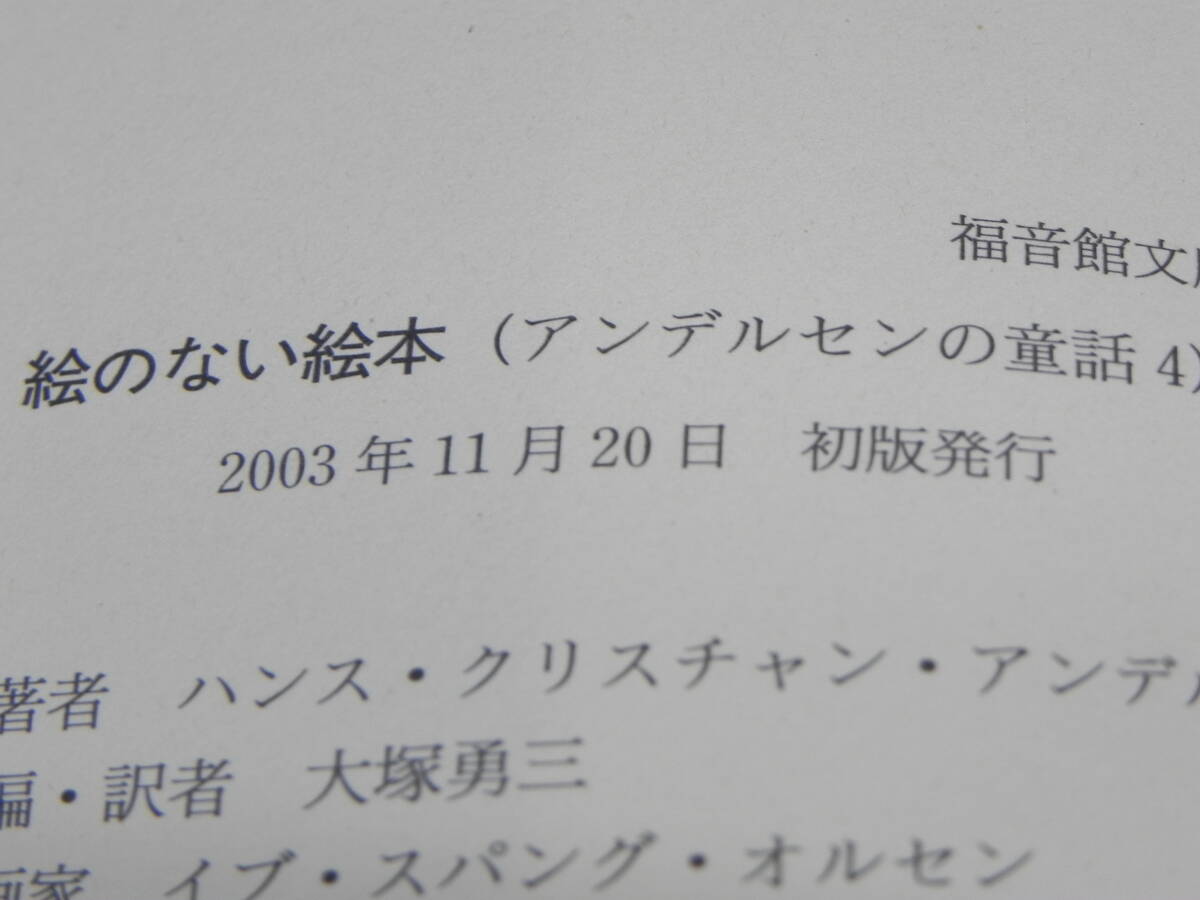 福音館文庫
絵のない絵本 (アンデルセンの童話 4)
2003 年 11 月 20 日　初版発行
著者　ハンス・クリスチャン・アンデル
編・訳者　大塚勇三
画家　イブ・スパング・オルセン